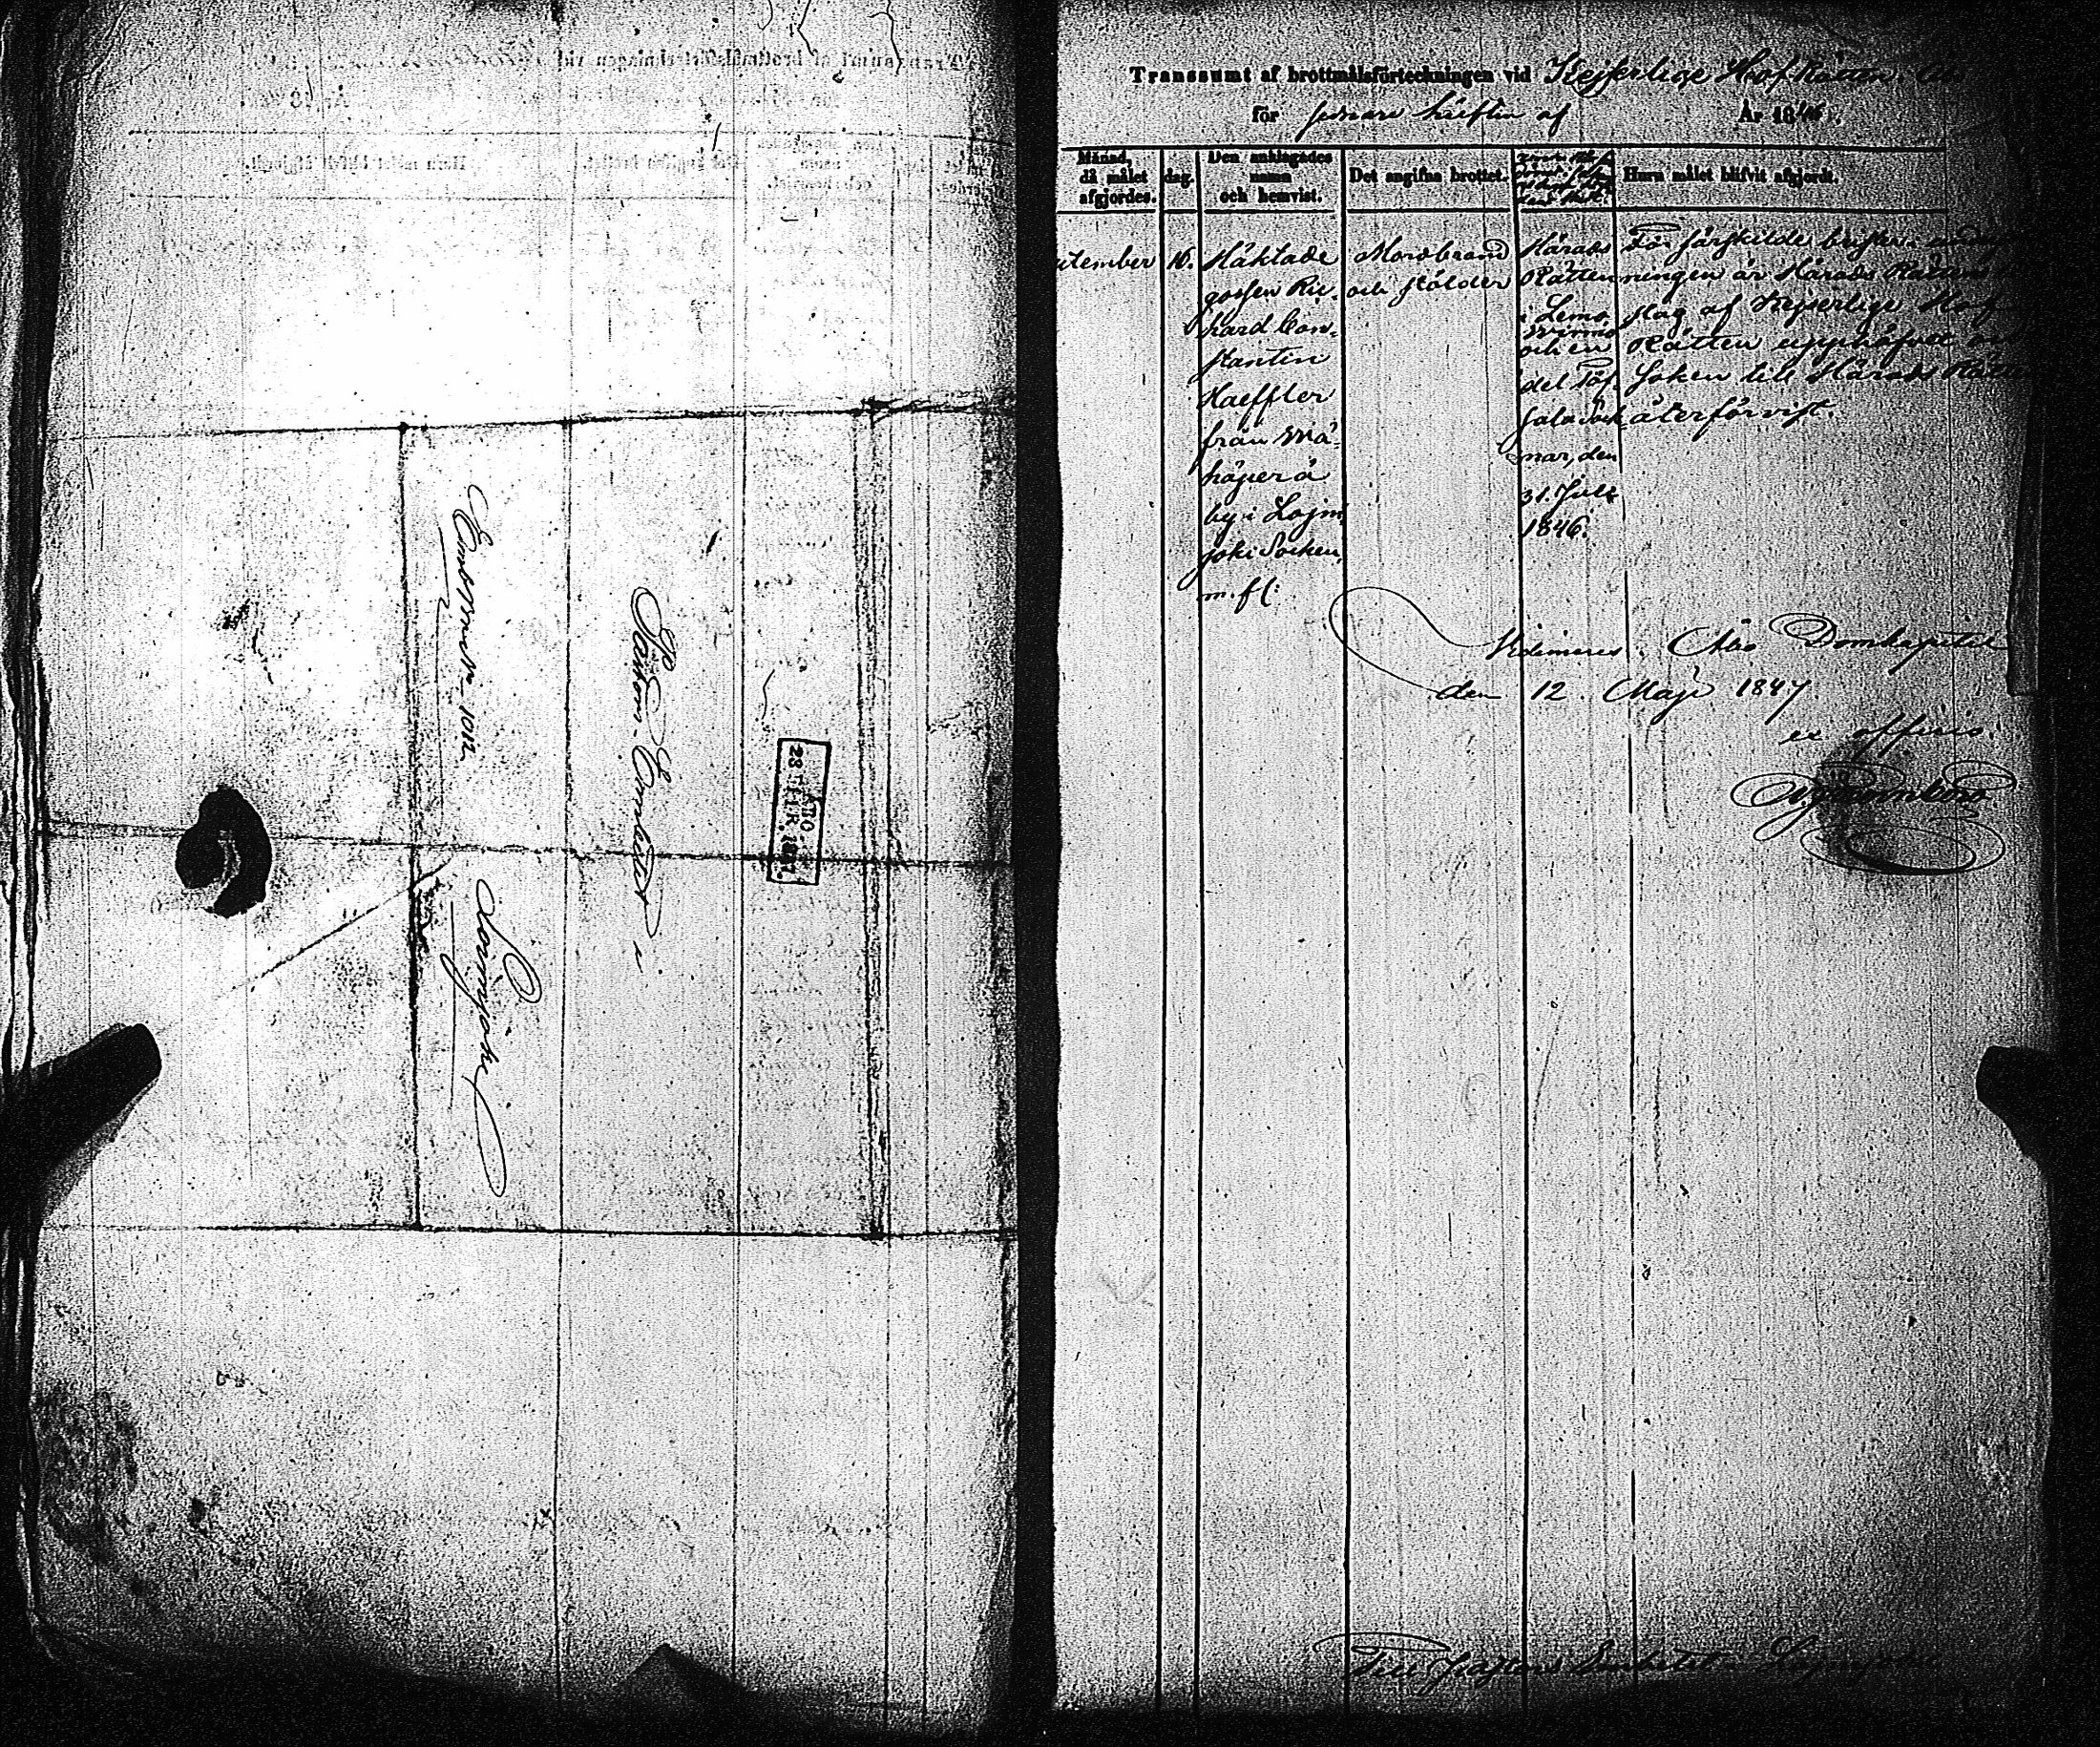 Embssaren 1012
Pastors-Embetet
i
Loimijoki
ÅBO.
1847.
Transsumt af brottmålsförteckningen vid Kejserlige Hof Rätten
för sednare hälften af År 1846.
Månad, då målet afgjordes.
dag.
Den anklagades namn och hemvist.
Det angifna brottet.
Huru målet blifvit afgjordt.
tember
16.
Häktade
gossen Ric-
hard Con-
stantin
Haeffler
från Mä-
häperä
by i Lojm
joki Socken
m. fl.
Mordbrand
och stölder
Härads
Rätten
i Lemo
Wirmo
och en
del Töf-
sala Sock-
nar, den
31. Juli
1846.
För särskilde brister i
ningen är Härads Rättens
slag af Kejserlige Hof
Rätten upphäfvet och
saken till Härads Rätten
återförvist.
Vidimeras. Åbo Domkapitel
den 12. Maji 1847
ex officio.
Till Pastors Embetet i